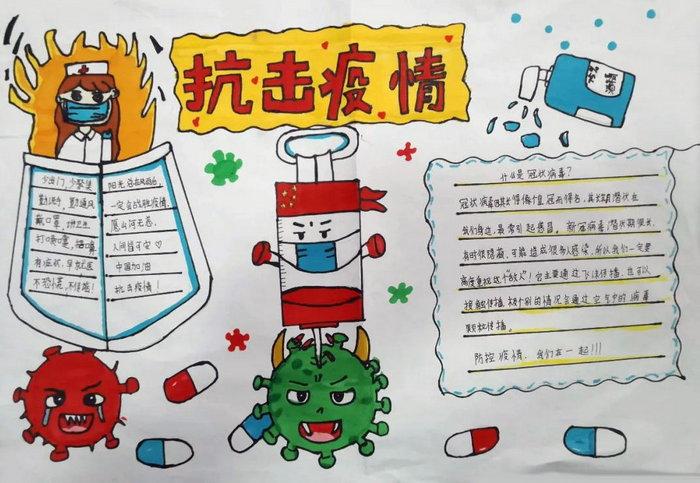 抗击疫情
75%
酒精
少出门，少聚集
勤洗手，勤通风
戴口罩，讲卫生
打喷嚏，捂口鼻
有症状，早就医
不恐慌，不信谣！
阳光总在风雨后，
一定会战胜疫情，
愿山河无恙，
人间皆可安♡
中国加油
抗击疫情！
什么是冠状病毒？
冠状病毒因长得像
冠而得名，其长期潜伏在
我们身边，最常引起感冒。新冠病毒潜伏期很长，
有时很隐蔽，可能造成很多人感染，所以我们一定要
高度重视这个“敌人”！它主要通过飞沫传播，也可以
接触传播，极个别的情况会通过空气中的病毒
颗粒传播。
防控疫情，我们在一起!!!